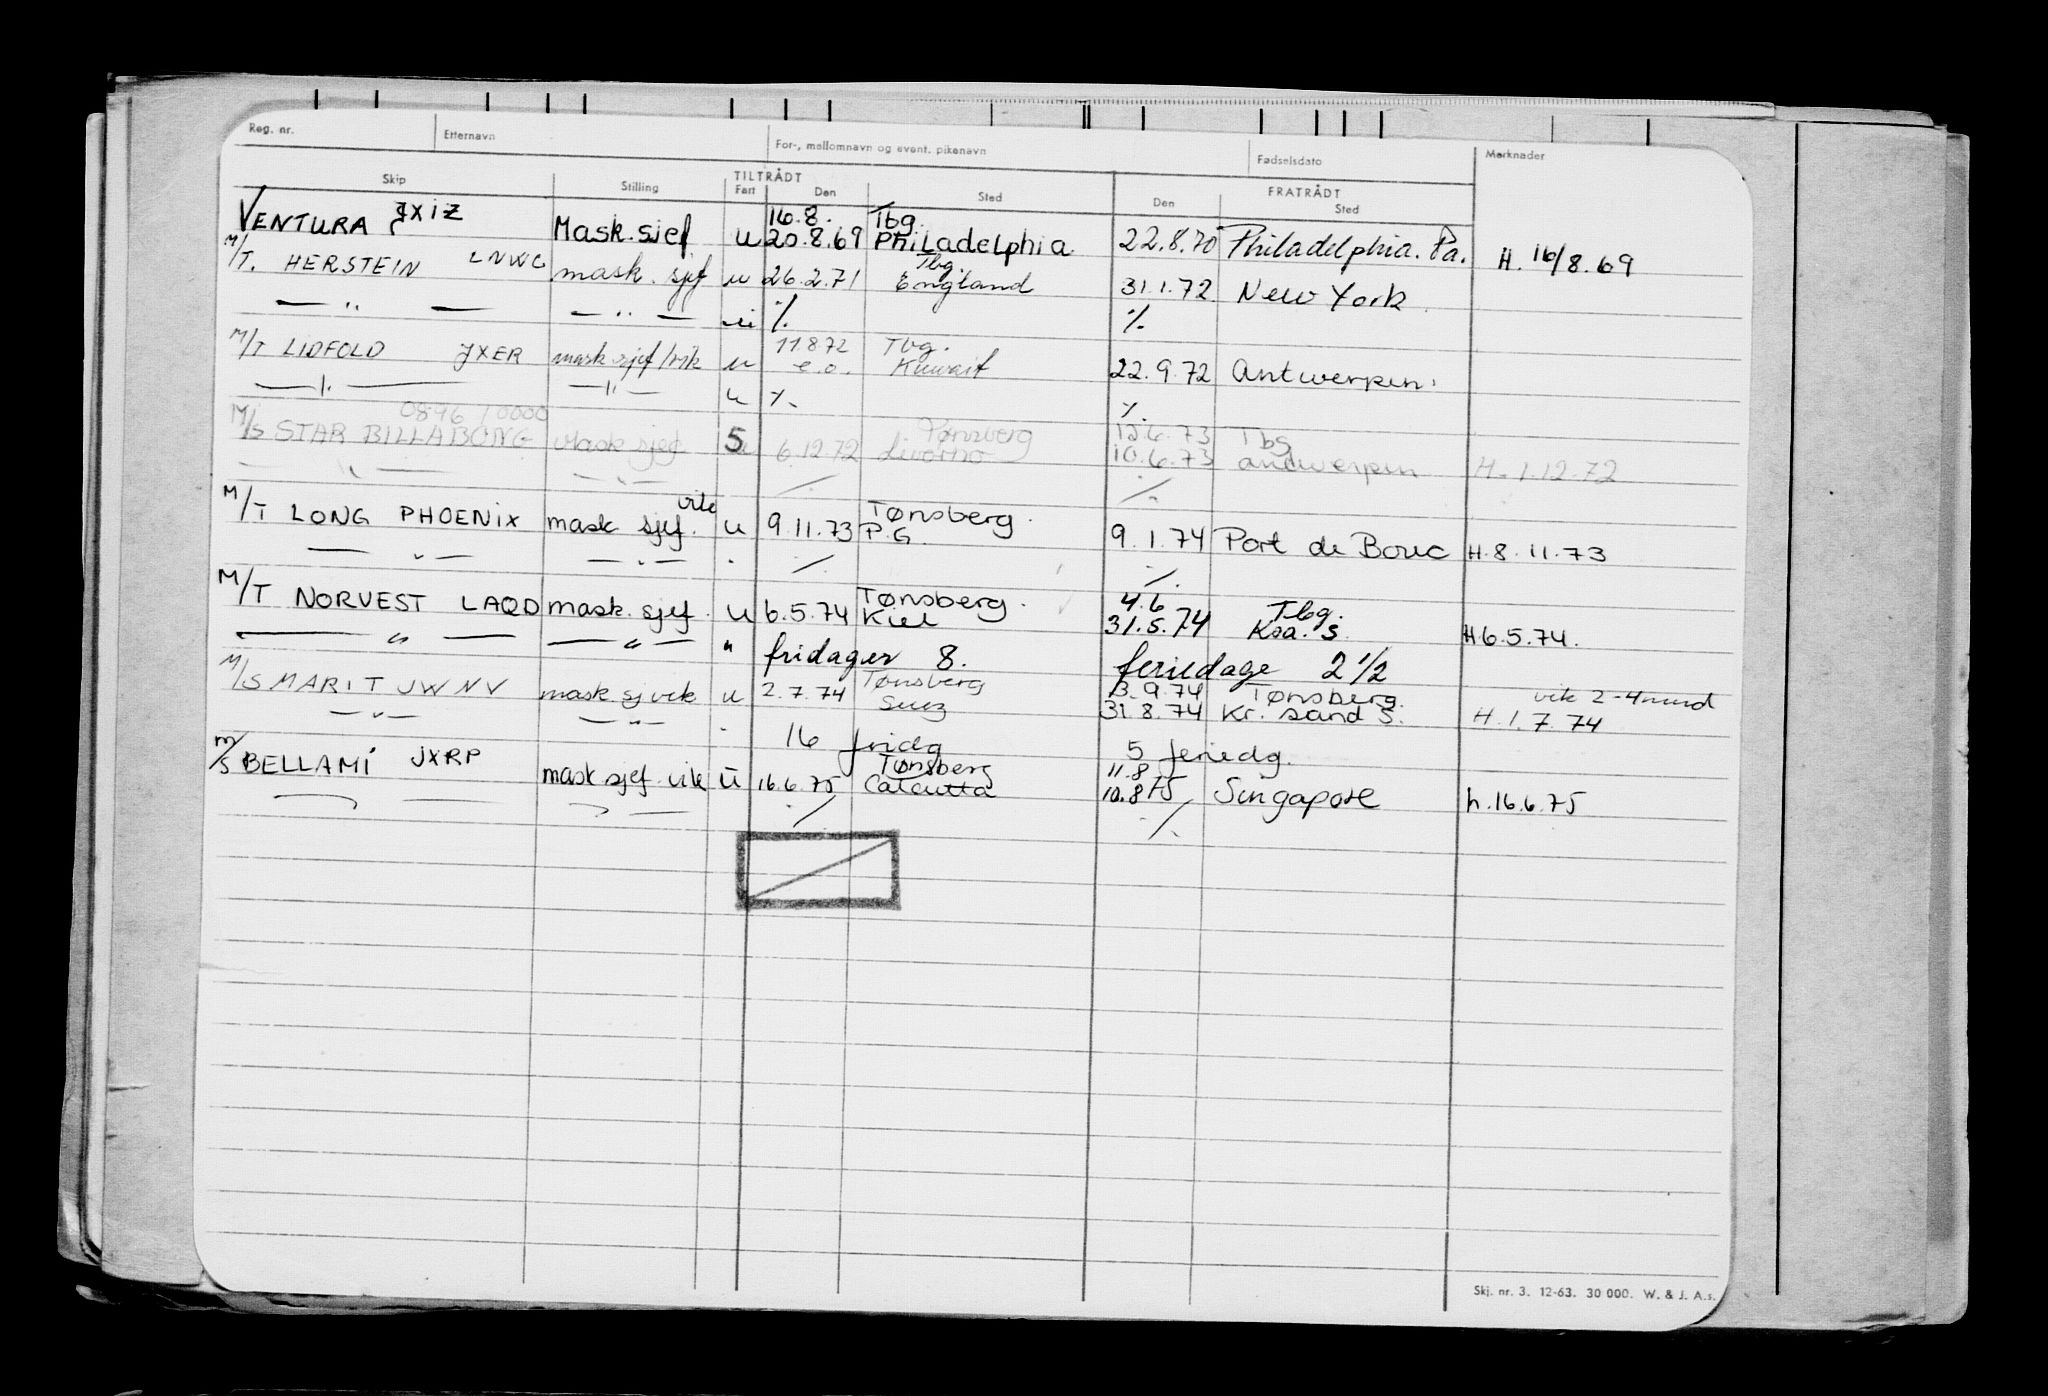 Reg. nr. Etternavn For-, mellomnavn og event. pikenavn Fødselsdato Merknader
TILTRÅDT FRATRÅDT
Skip Stilling Fart Den Sted Den Sted
16.8. Tbg.
VENTURA JXIZ Mask.sjef u 20.8.69 Philadelphia 22.8.70 Philadelphia. Pa. H. 16/8.69
Tbg.
M/T. HERSTEIN LNWC mask. sjef u 26.2.71 England 31.1.72 New York
— " — — " — u ./. ./.
11.8.72 Tbg.
M/T LIDFOLD JXER mask sjef/vik u e.o. Kuwait 22.9.72 Antwerpen.
— " — — " — u ./. ./.
0896/0000 Tønsberg 15.6.73 Tbg
M/S STAR BILLABONG Mask sjef S 6.12.72 Livorno 10.6.73 antwerpen H. 1.12.72
— " — — " — ./. ./.
vik Tønsberg.
M/T LONG PHOENIX mask sjef. u 9.11.73 P.G. 9.1.74 Port de Bouc H.8.11.73
— " — — " — " ./. ./.
Tønsberg. 4.6 Tbg.
M/T NORVEST LAQD mask. sjef. u 6.5.74 Kiel 31.5.74 Krsa. S. H 6.5.74.
— " — — " — " fridager 8. feriedage 2 1/2
Tønsberg 3.9.74 Tønsberg. vik 2-4 mnd
M/S MARIT JWNV mask. sj vik u 2.7.74 Suez 31.8.74 Kr. sand S. H.1.7.74
— " — — " — " 16 fridg 5 feriedg.
Tønsberg 11.8
M/S BELLAMI JXRP mask sjef vik u 16.6.75 Calcutta 10.8.75 Singapore h.16.6.75
— " — — " — ./. ./.
Skj. nr. 3. 12-63. 30 000. W. & J. A.s.